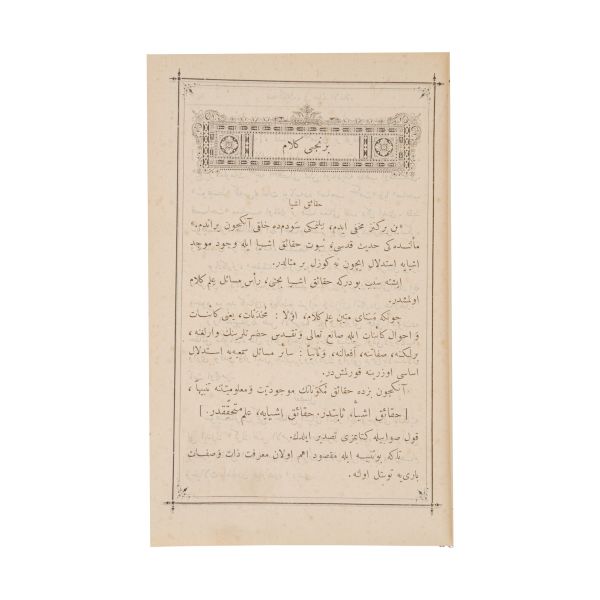 برنجی كلام
حقائق اشیا
«بن بر كنز مخفی ایدم، بلنمكی سودم ده خلقی آنكچون یراتدم.»
مألنده كی حدیث قدسی، ثبوت حقائق اشیا ایله وجود موجد
اشیایه استدلال ایچون نه كوزل بر مثالدر.
ایشته سبب بودركه حقائق اشیا بحثی، رأس مسائل علم كلام
اولمشدر.
چونكه مبنای متین علم كلام، اوّلا : محدثات، یعنی كائنات
و احوال كائنات ایله صانع تعالی و تقدس حضرتلرینك وارلغنه،
برلكنه، صفاتنه، افعالنه، و ثانیاً : سائر مسائل سمعیه یه استدلال
اساسی اوزرینه قورلمش در.
آنكچون بزده حقائق مكوّناتك موجودیت و معلومیتنه تنبیهاً،
[ حقائق اشیا، ثابتدر. حقائق اشیایه، علم متحققدر. ]
قول صوابیله كتابمزی تصدیر ایلدك.
تاكه بو تنبیه ایله مقصود اهم اولان معرفت ذات و صفات
باری یه توسّل اولنه.